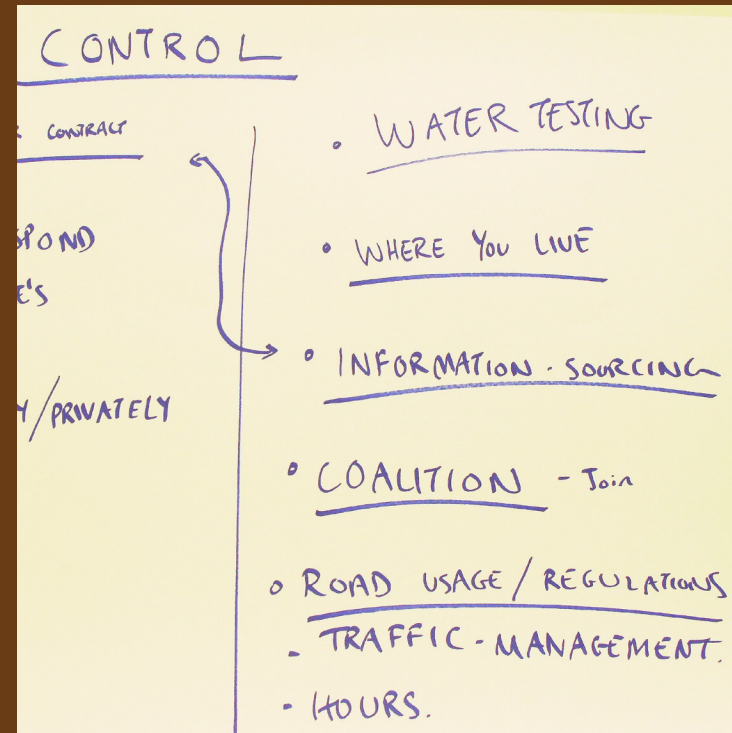 CONTROL
CONTRACT
POND
E'S
Y/PRIVATELY
• WATER TESTING
• WHERE YOU LIVE
• INFORMATION - SOURCING
• COALITION - Join
• ROAD USAGE / REGULATIONS
- TRAFFIC - MANAGEMENT.
- HOURS.